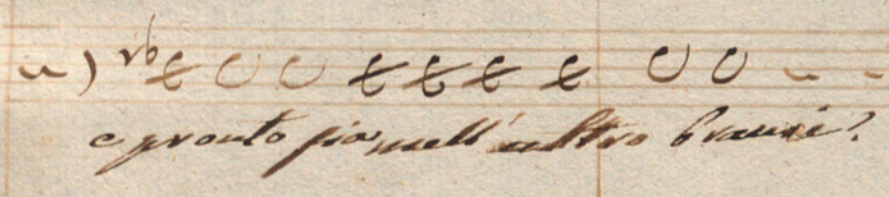 e pronto sia nell' altro brami?